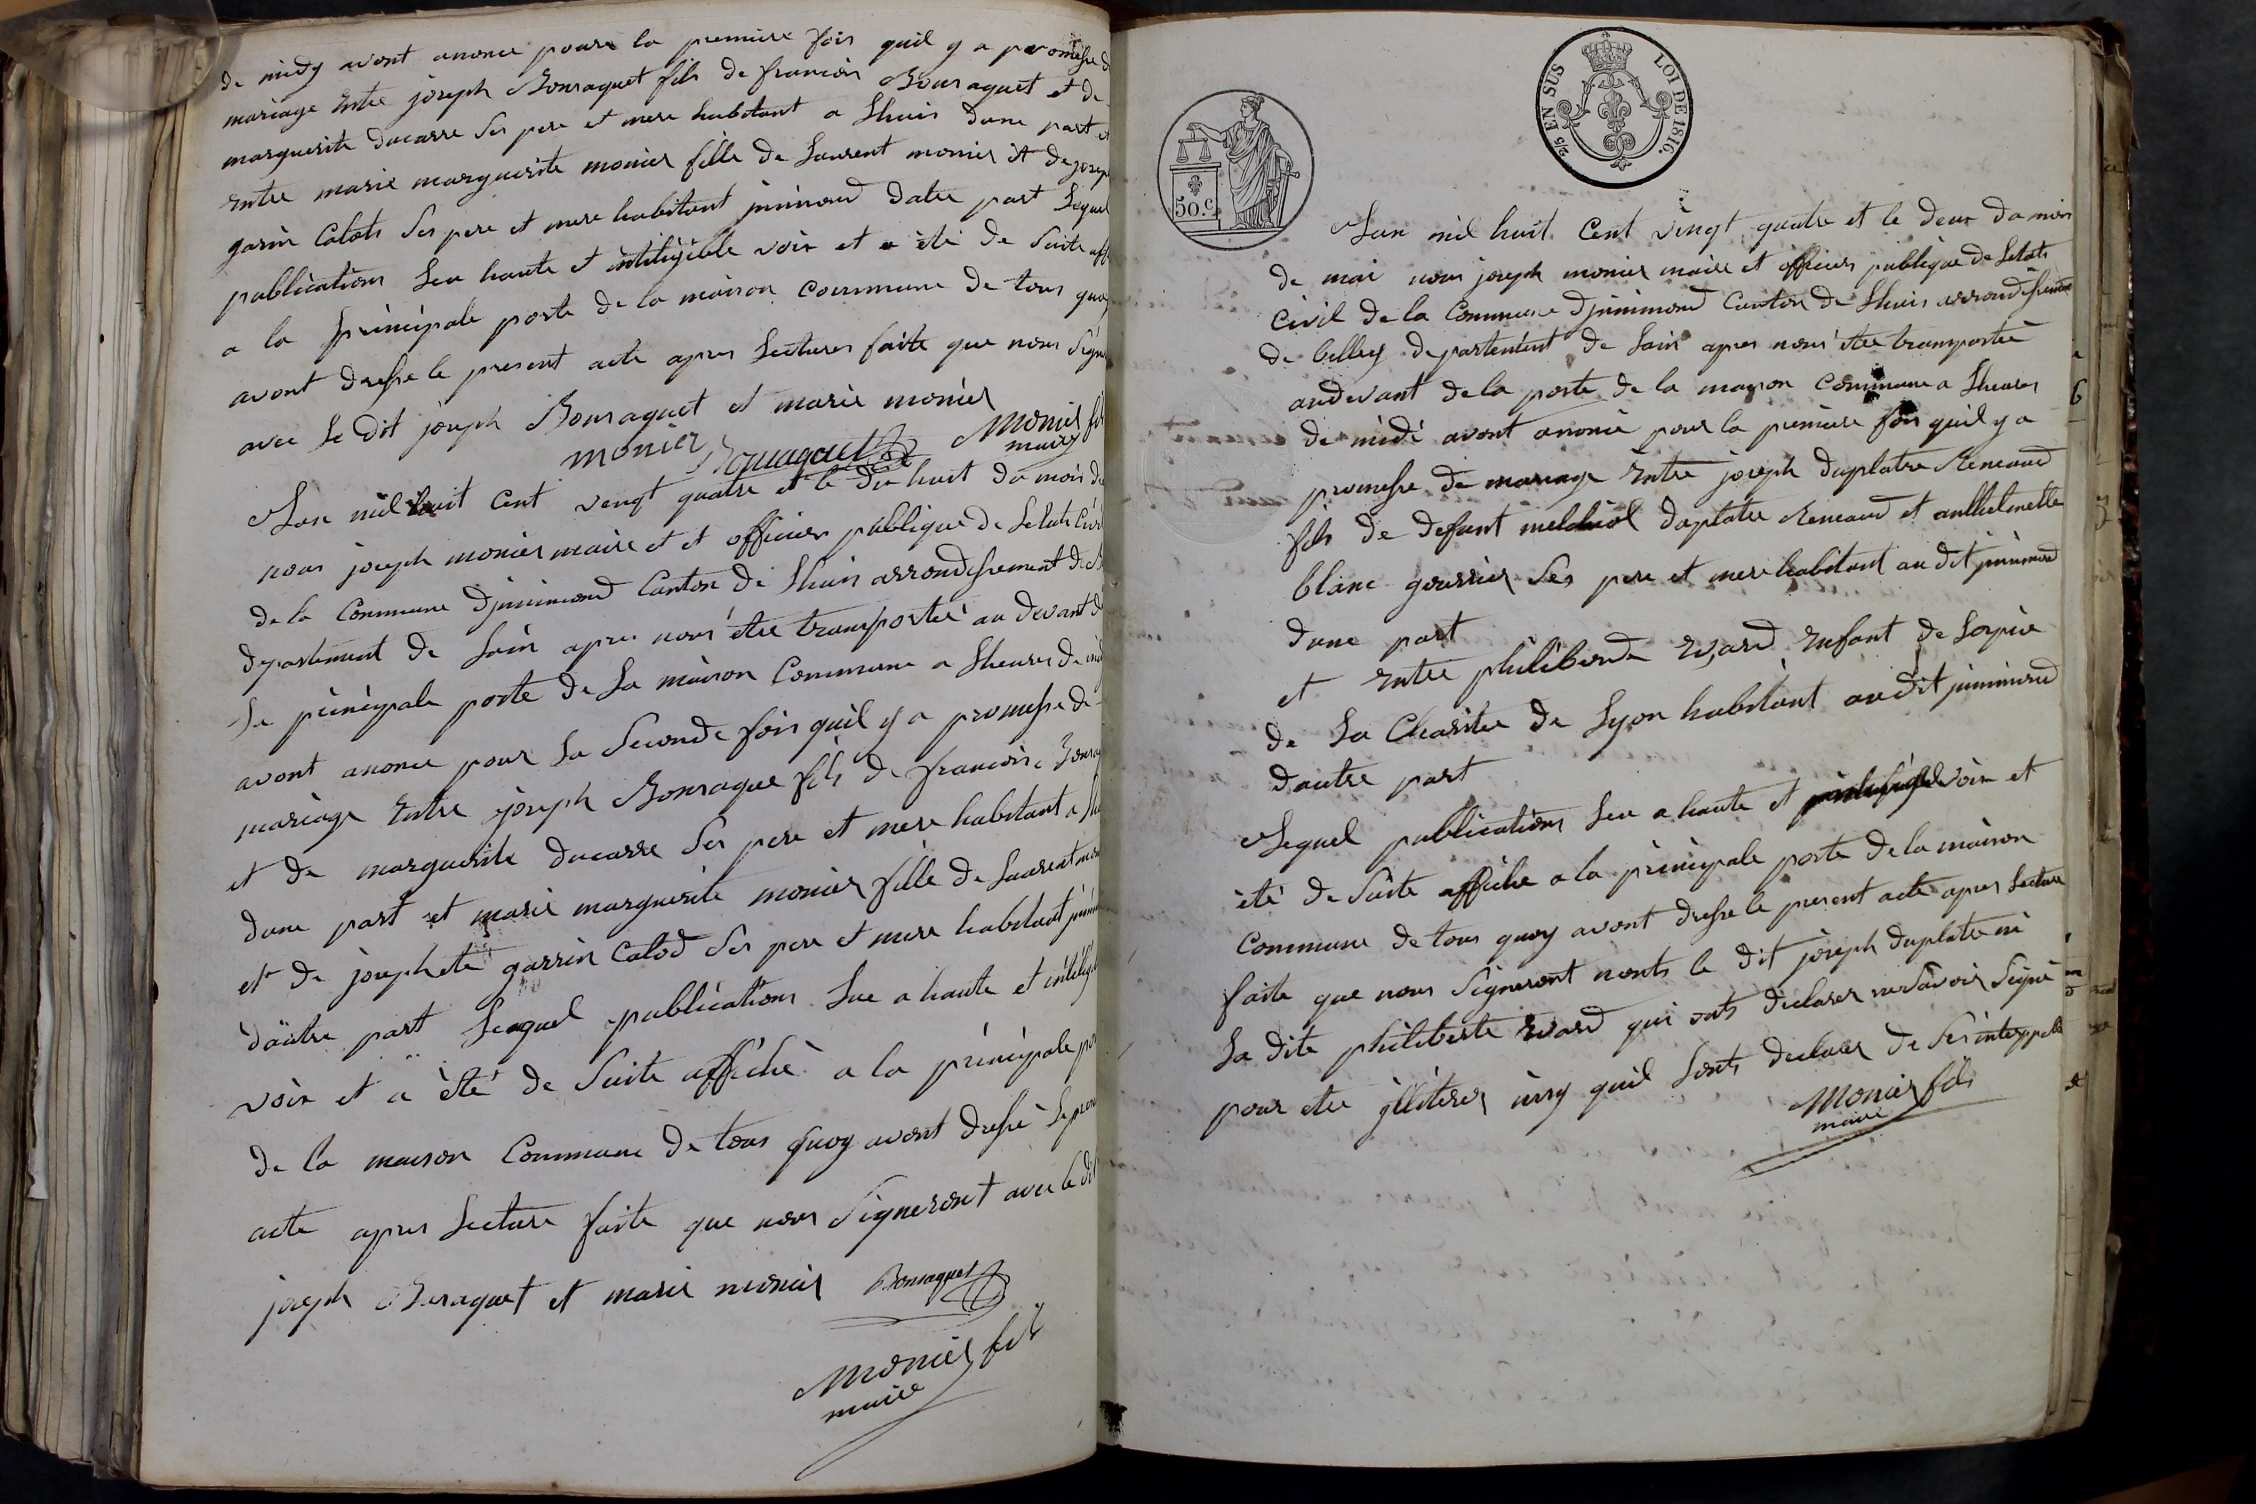 de midy avont anonce pour la premiere fois quil y a promesse d
mariage Entre joseph Bonraquet fils de francois Bonraquet et de
marguerite ducarre Ses pere et mere habitant a Lhuis dune part et
Entre marie marguerite monier fille de Laurent monier et de josep
garin Calots Ses pere et mere habitant jnnimond datre part Lequel
publications Leu haute et intiligible voix et a été de Suite affi
a la principale porte de la maison Commune de tous quoy
avont dresse le present acte apres Lectures faite que nous Signe
avec Le dit joseph Bonraquet et marie monier
monier Bonraquet Monier fils
maire
Lan mil huit Cent vengt quatre et le dix huit du mois d
nous joseph monier maire et et officier publique de Letats Civi
de la Commune djnnimond Canton de Lhuis arrondissement de B
departement de Lain apres nous étre transportée au devant d
La principale porte de La maison Commune a Lheures de mid
avont anonce pour La Seconde fois quil y a promesse de
mariage Entre joseph Bonraque fils de francois Bonra
et de marguerite ducarre Ses pere et mere habitant a Lhu
dune part et marie marguerite monier fille de Laurent mon
et de josephete garrin Calod Ses pere et mere habitant jnnim
dautre part Lequel publications Lue a haute et intelig
voix et a été de Suite affiché a la principale por
de la maison Commune de tous quoy avont dressé Le pres
acte apres Lecture faite que nous Signeront avec le dit
joseph Bonraquet et marie monier Bonraquet
Monier fils
maire
2/5 EN SUS LOI DE 1816.
50.c
Lan mil huit Cent vingt quatre et le deux du mois
de mai nous joseph monier maire et officier publique de Letats
Civil de la Commune djnnimond Canton de Lhuis arrondissement
de belley departement de Lain apres nous étre transportée
audevant de la porte de la maison Commune a Lheures
de midi avont anonce pour la premiere fois quil y a
promesse de mariage Entre joseph duplatre Reneaud
fils de defunt melchiol duplatre Reneaud et anthelmette
blanc gourrier Ses pere et mere habitant au dit jnnimond
dune part
et Entre philiberde Evard Enfant de Lospice
de La Charitée de Lyon habitant audit jnnimond
dautre part
Lequel publications Leu a haute et voix et
été de Suite affiche a la principale porte de la maison
Commune de tous quoy avont dresse le present acte apres Lecture
faite que nous Signeront nonts le dit joseph duplatre ni
La dite philiberte Evard qui onts declarer ne Savoir Signé
pour étre jlliterer insy quil Lonts declarer de Ses interppelle
Monier fils
maire